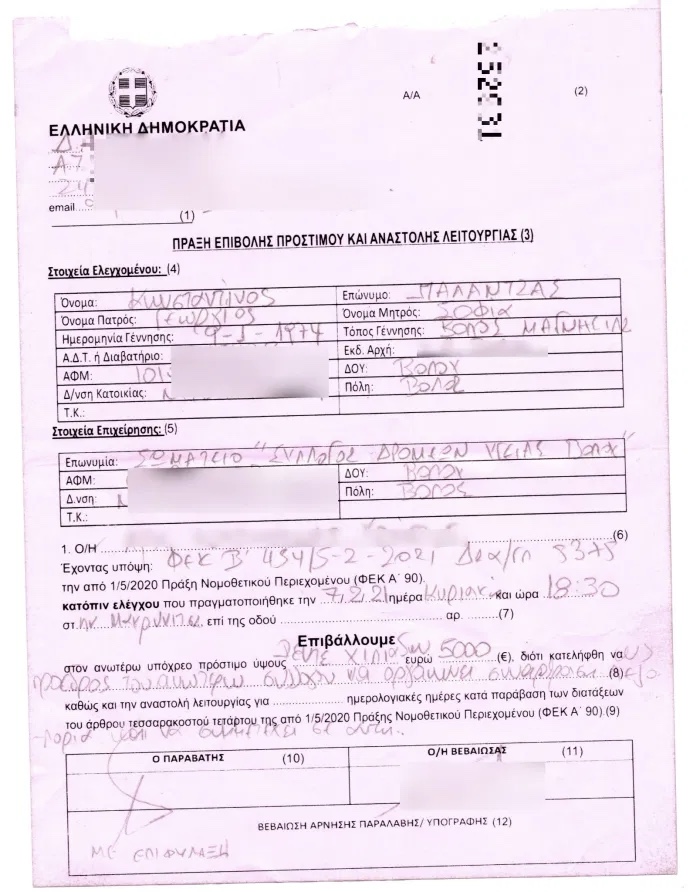 Α/Α (2)
ΕΛΛΗΝΙΚΗ ΔΗΜΟΚΡΑΤΙΑ
email
(1)
ΠΡΑΞΗ ΕΠΙΒΟΛΗΣ ΠΡΟΣΤΙΜΟΥ ΚΑΙ ΑΝΑΣΤΟΛΗΣ ΛΕΙΤΟΥΡΓΙΑΣ (3)
Στοιχεία Ελεγχομένου: (4)
Όνομα: ΚΩΝΣΤΑΝΤΙΝΟΣ Επώνυμο: ΠΑΛΑΝΤΖΑΣ
Όνομα Πατρός: ΓΕΩΡΓΙΟΣ Όνομα Μητρός: ΣΟΦΙΑ
Ημερομηνία Γέννησης: Τόπος Γέννησης: ΒΟΛΟΣ ΜΑΓΝΗΣΙΑΣ
Α.Δ.Τ. ή Διαβατήριο: Εκδ. Αρχή:
ΑΦΜ: ΔΟΥ: ΒΟΛΟΥ
Δ/νση Κατοικίας: Πόλη: ΒΟΛΟΣ
Τ.Κ.:
Στοιχεία Επιχείρησης: (5)
Επωνυμία: ΣΩΜΑΤΕΙΟ "ΣΥΛΛΟΓΟΣ ΔΡΟΜΕΩΝ ΥΓΕΙΑΣ ΒΟΛΟΥ"
ΑΦΜ: ΔΟΥ: ΒΟΛΟΥ
Δ.νση: Πόλη: ΒΟΛΟΣ
Τ.Κ.:
1. Ο/Η (6)
Έχοντας υπόψη: ΦΕΚ Β' 454/5-2-2021
την από 1/5/2020 Πράξη Νομοθετικού Περιεχομένου (ΦΕΚ Α΄ 90).
κατόπιν ελέγχου που πραγματοποιήθηκε την 7/2/21 ημέρα Κυριακή και ώρα 18:30
στ ην Μακρυνίτσα, επί της οδού αρ. (7)
Επιβάλλουμε
στον ανωτέρω υπόχρεο πρόστιμο ύψους πέντε χιλιάδων 5000 ευρώ (€), διότι κατελήφθη να ως
πρόεδρος του ανωτέρω συλλόγου να οργανώνει συνάθροιση (8)
καθώς και την αναστολή λειτουργίας για ημερολογιακές ημέρες κατά παράβαση των διατάξεων
του άρθρου τεσσαρακοστού τετάρτου της από 1/5/2020 Πράξης Νομοθετικού Περιεχομένου (ΦΕΚ Α΄ 90).(9)
και να συμμετέχει σε αυτή.
Ο ΠΑΡΑΒΑΤΗΣ (10) Ο/Η ΒΕΒΑΙΩΣΑΣ (11)
ΒΕΒΑΙΩΣΗ ΑΡΝΗΣΗΣ ΠΑΡΑΛΑΒΗΣ/ ΥΠΟΓΡΑΦΗΣ (12)
ΜΕ ΕΠΙΦΥΛΑΞΗ